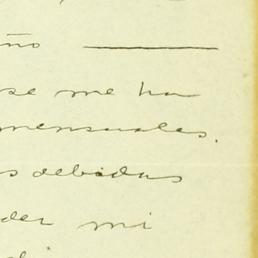 ño
se me ha
mensuales.
s debidas
der mi